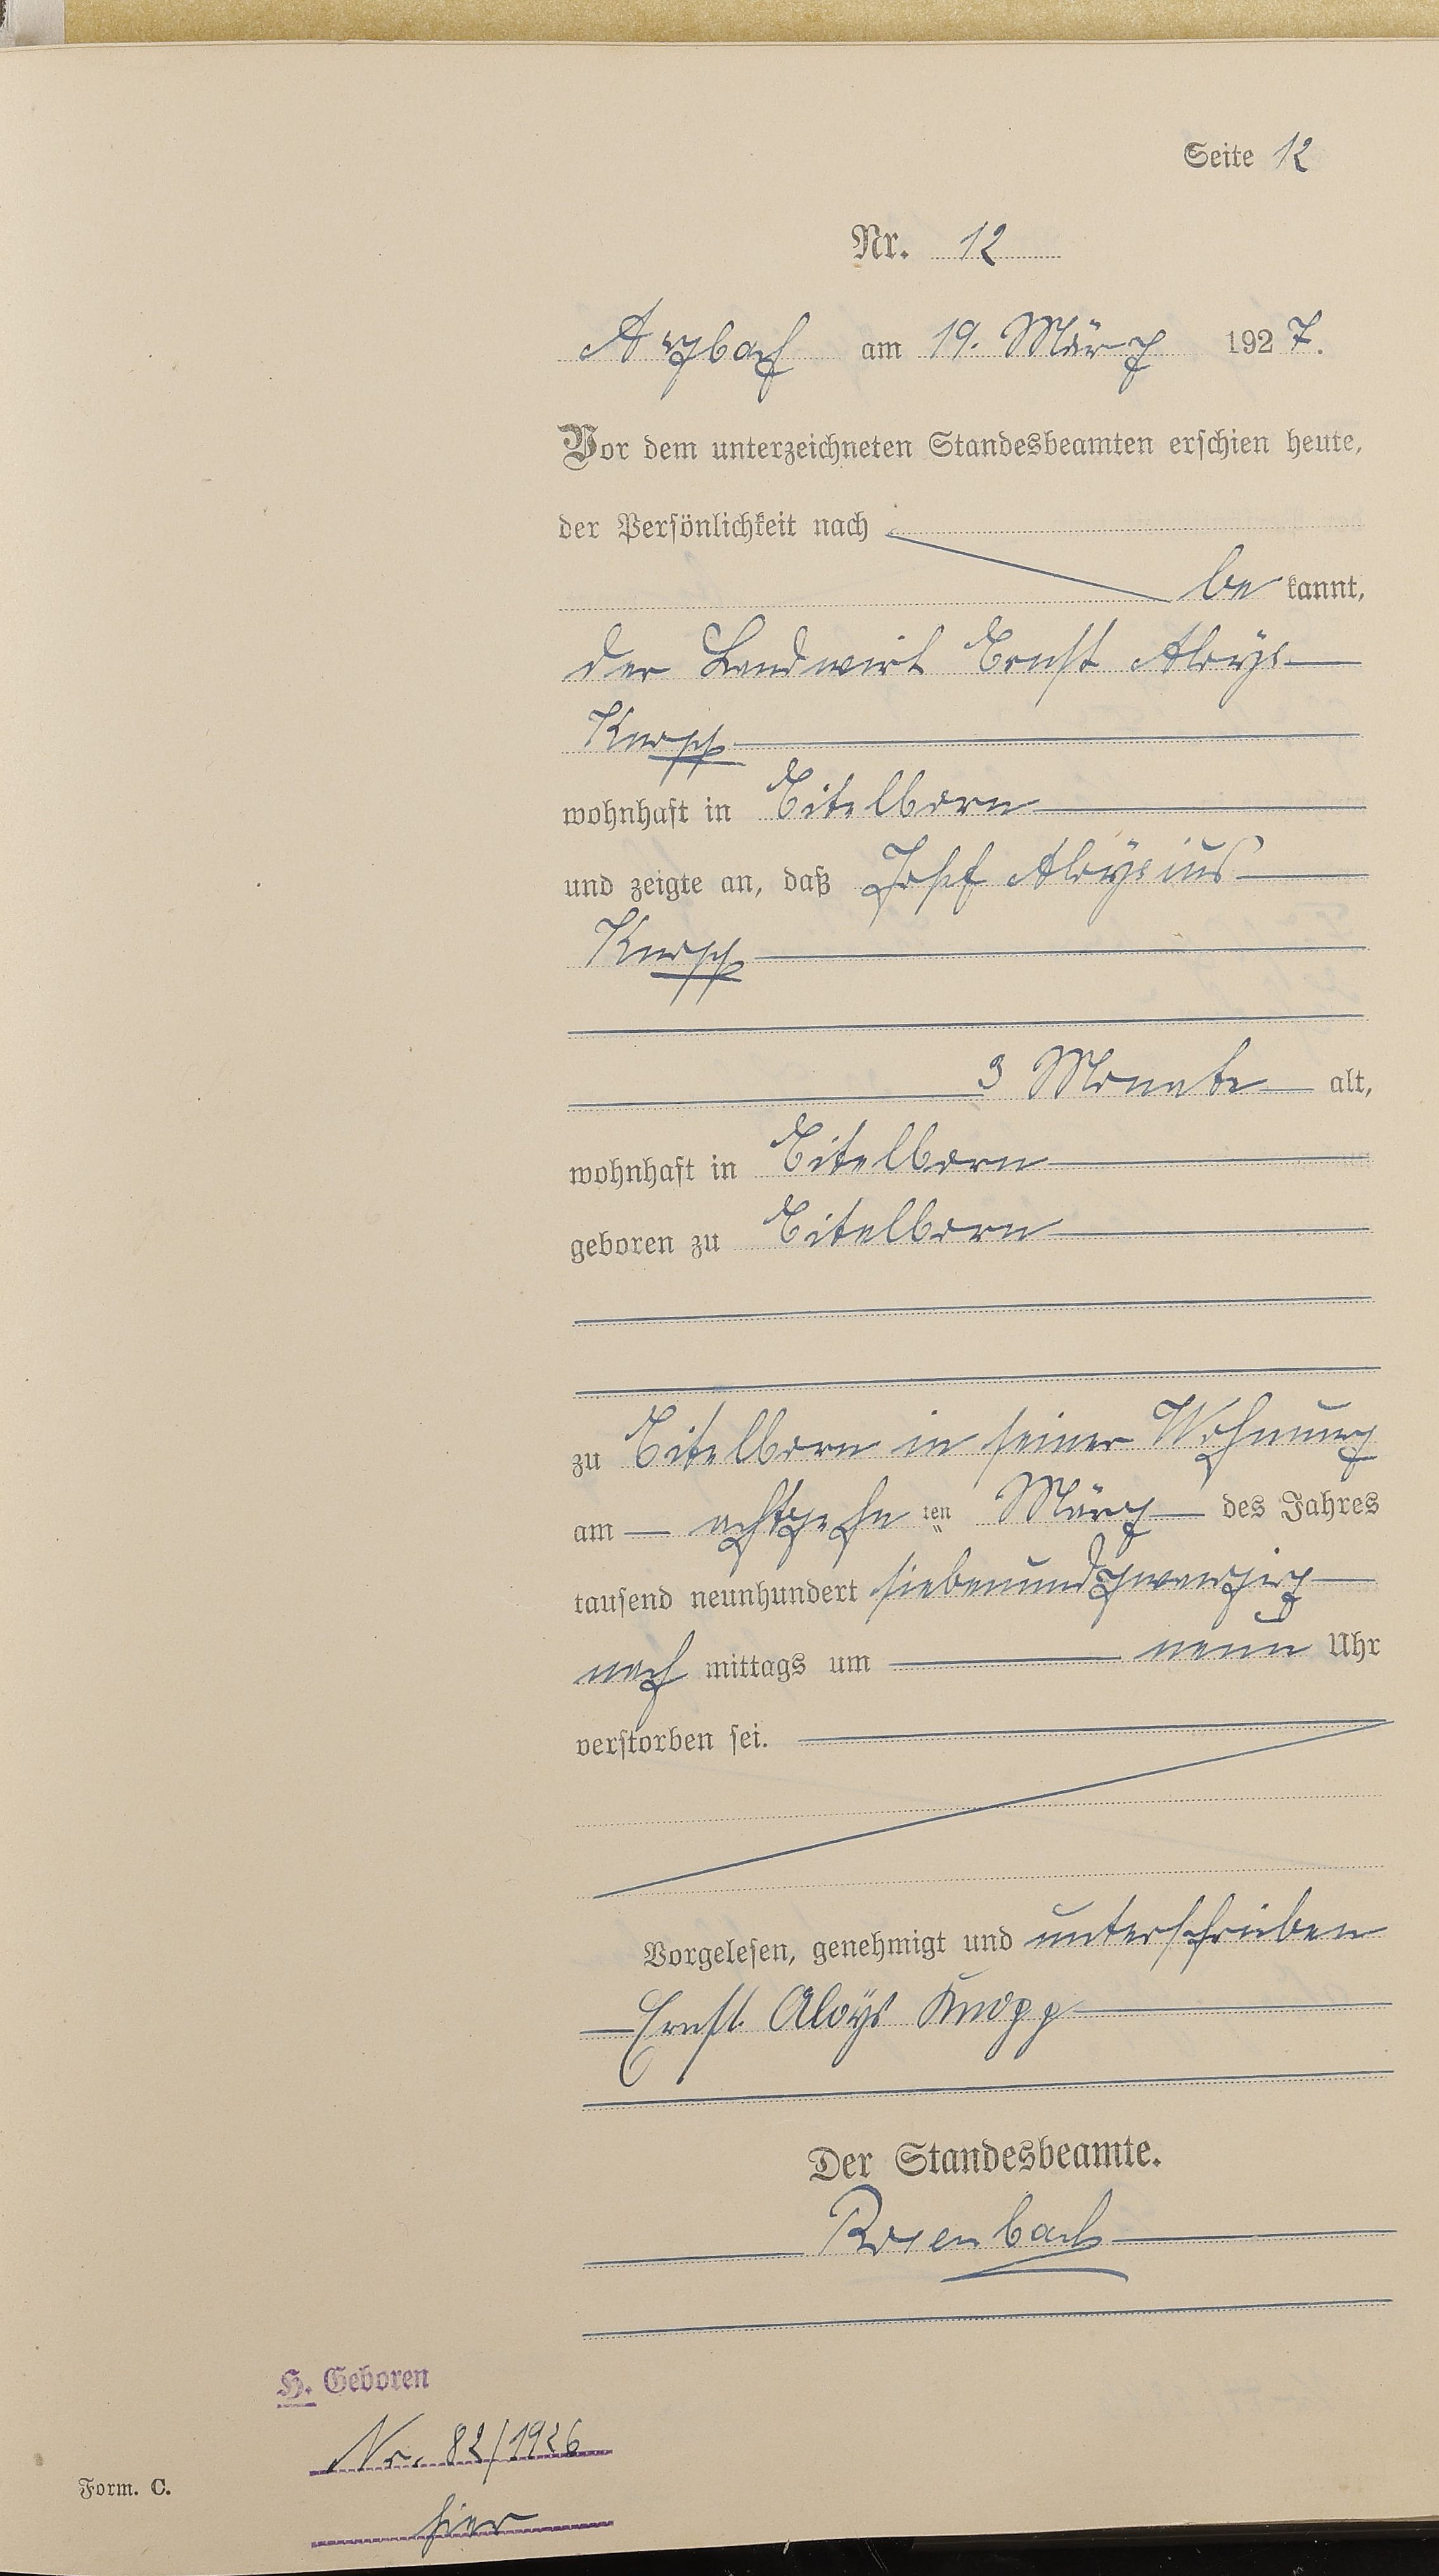 Seite 12
Nr. 12
Arzbach am 19. März 1927.
Vor dem unterzeichneten Standesbeamten erschien heute,
der Persönlichkeit nach
be kannt,
der Landwirt Ernst Aloys
Knopp
wohnhaft in Eitelborn
und zeigte an, daß Josef Aloysius
Knopp
3 Monate alt,
wohnhaft in Eitelborn
geboren zu Eitelborn
zu Eitelborn in seiner Wohnung
am achtzehn ten März des Jahres
tausend neunhundert siebenundzwanzig
nach mittags um neun Uhr
verstorben sei.
Vorgelesen, genehmigt und unterschrieben
Ernst Aloys Knopp
Der Standesbeamte.
Rosenbach
H. Geboren
Nr. 82/1926
hier
Form. C.